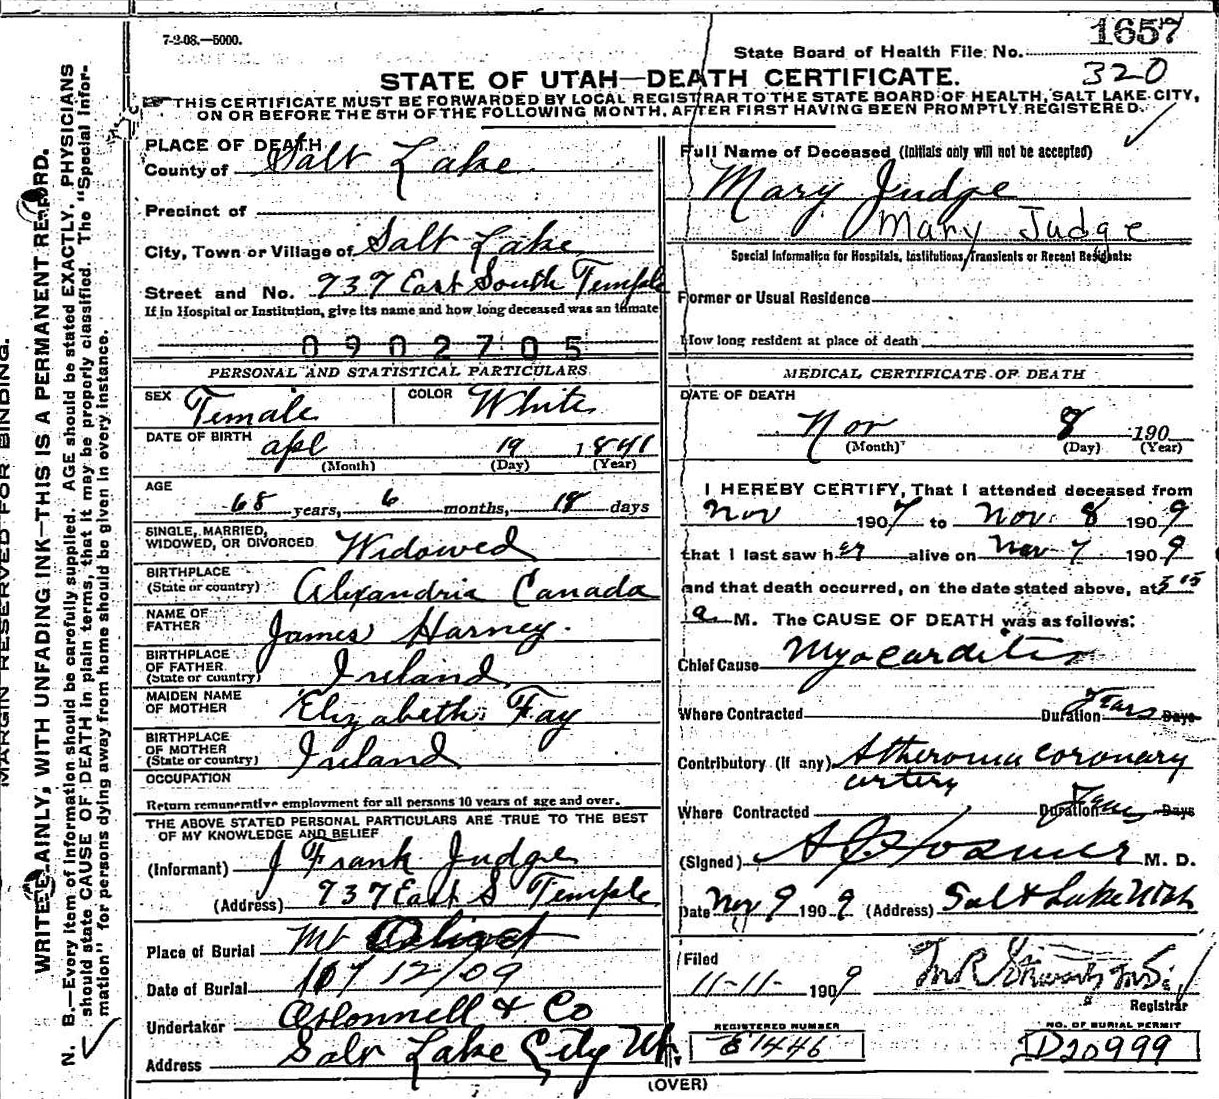 7-2-08.—5000.
1657
State Board of Health File No.
320
STATE OF UTAH—DEATH CERTIFICATE.
THIS CERTIFICATE MUST BE FORWARDED BY LOCAL REGISTRAR TO THE STATE BOARD OF HEALTH, SALT LAKE CITY,
ON OR BEFORE THE 5TH OF THE FOLLOWING MONTH, AFTER FIRST HAVING BEEN PROMPTLY REGISTERED.
MARGIN RESERVED FOR BINDING.
WRITE PLAINLY, WITH UNFADING INK—THIS IS A PERMANENT RECORD.
N. B.—Every item of information should be carefully supplied. AGE should be stated EXACTLY, PHYSICIANS
should state CAUSE OF DEATH in plain terms, that it may be properly classified. The "Special Infor-
mation" for persons dying away from home should be given in every instance.
PLACE OF DEATH
County of Salt Lake
Precinct of
City, Town or Village of Salt Lake
Street and No. 737 East South Temple
If in Hospital or Institution, give its name and how long deceased was an inmate
0902705
PERSONAL AND STATISTICAL PARTICULARS
SEX Female COLOR White
DATE OF BIRTH Apl 19 1841
(Month) (Day) (Year)
AGE
68 years, 6 months, 18 days
SINGLE, MARRIED,
WIDOWED, OR DIVORCED Widowed
BIRTHPLACE
(State or country) Alexandria Canada
NAME OF
FATHER James Harney.
BIRTHPLACE
OF FATHER
(State or country) Ireland
MAIDEN NAME
OF MOTHER Elizabeth Fay
BIRTHPLACE
OF MOTHER
(State or country) Ireland
OCCUPATION
Return remunerative employment for all persons 10 years of age and over.
THE ABOVE STATED PERSONAL PARTICULARS ARE TRUE TO THE BEST
OF MY KNOWLEDGE AND BELIEF
(Informant) J Frank Judge
(Address) 737 East S Temple
Place of Burial Mt Olivet
Date of Burial 12/09
Undertaker O'Donnell & Co
Address Salt Lake City Ut.
Full Name of Deceased (Initials only will not be accepted)
Mary Judge
Mary Judge
Special Information for Hospitals, Institutions, Transients or Recent Residents:
Former or Usual Residence
How long resident at place of death
MEDICAL CERTIFICATE OF DEATH
DATE OF DEATH
Nov 8 190
(Month) (Day) (Year)
I HEREBY CERTIFY, That I attended deceased from
Nov 1907 to Nov. 8 1909
that I last saw her alive on Nov 7 1909
and that death occurred, on the date stated above, at 3 15
a M. The CAUSE OF DEATH was as follows:
Chief Cause Myocarditis
Where Contracted Duration Years Days
Contributory (If any) Atheroma coronary
artery
Where Contracted Duration Years Days
(Signed) A J Hosmer M. D.
Date Nov 9 1909 (Address) Salt Lake Utah
Filed
11-11- 1909
Registrar
REGISTERED NUMBER
E1446
NO. OF BURIAL PERMIT
D20999
(OVER)